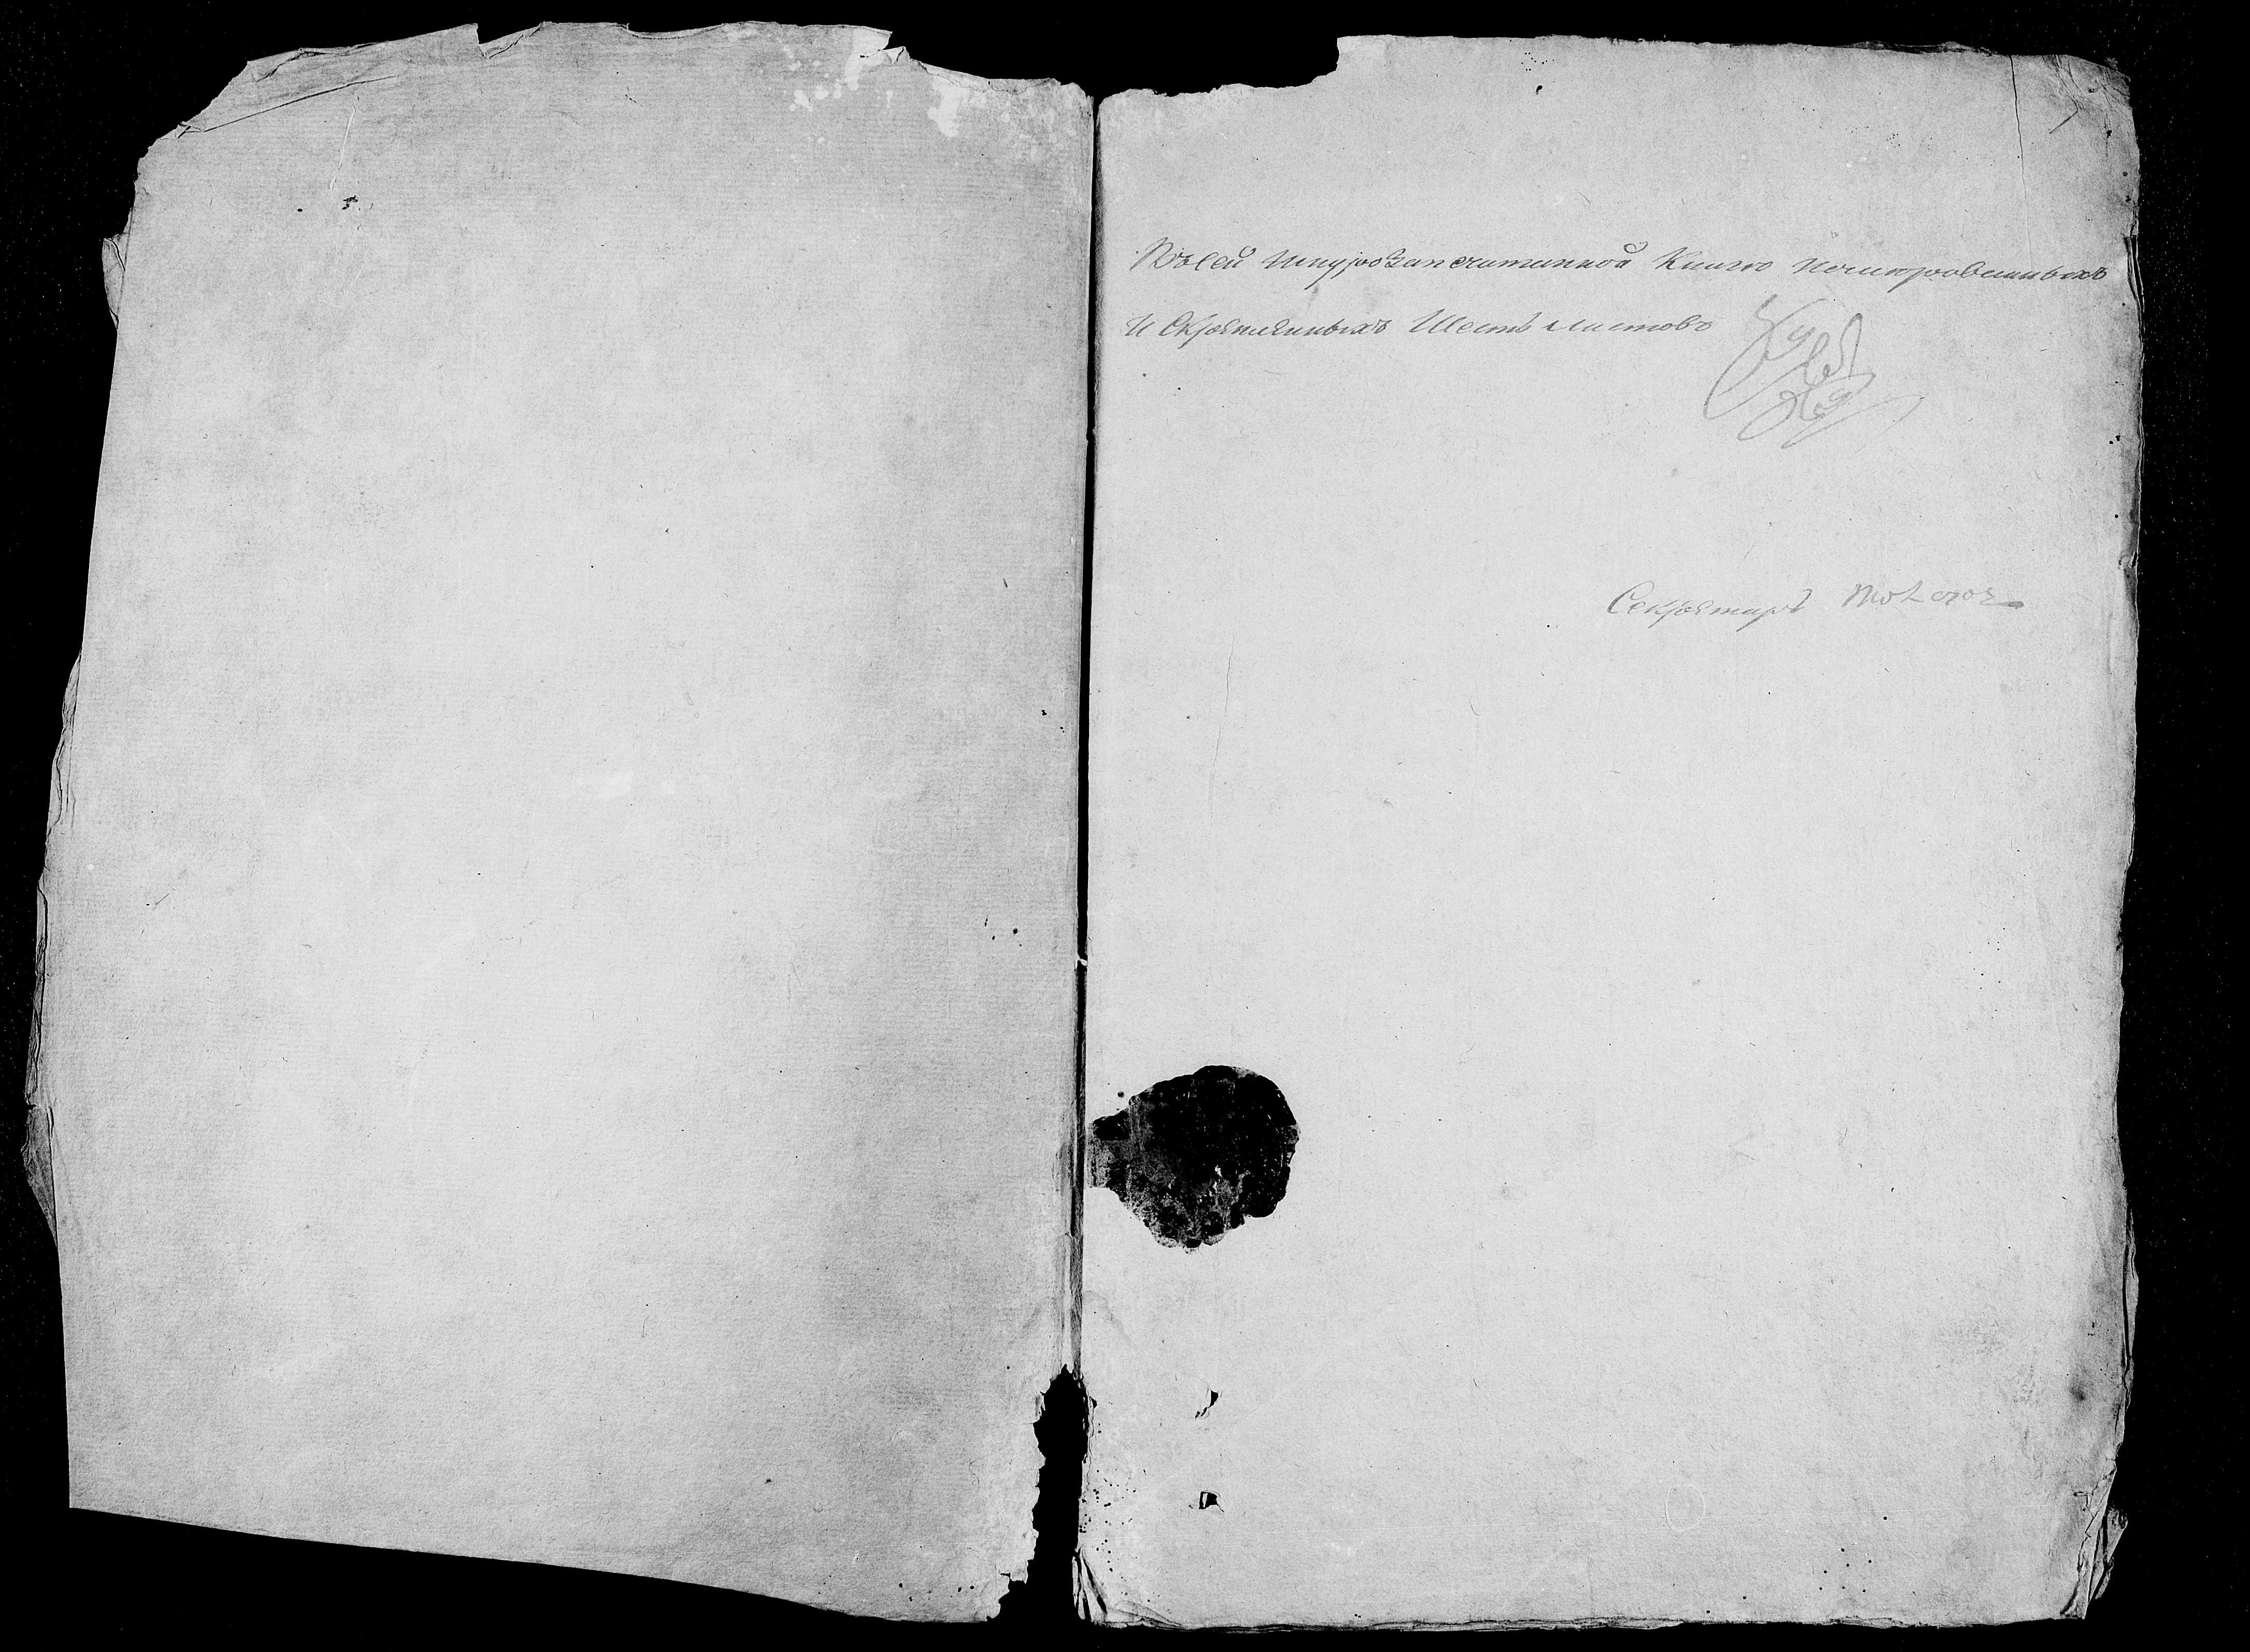 Въ сей шнурозапечатанной Книге номерованныхъ
и Скрепленныхъ Шесть листовъ
Секретарь